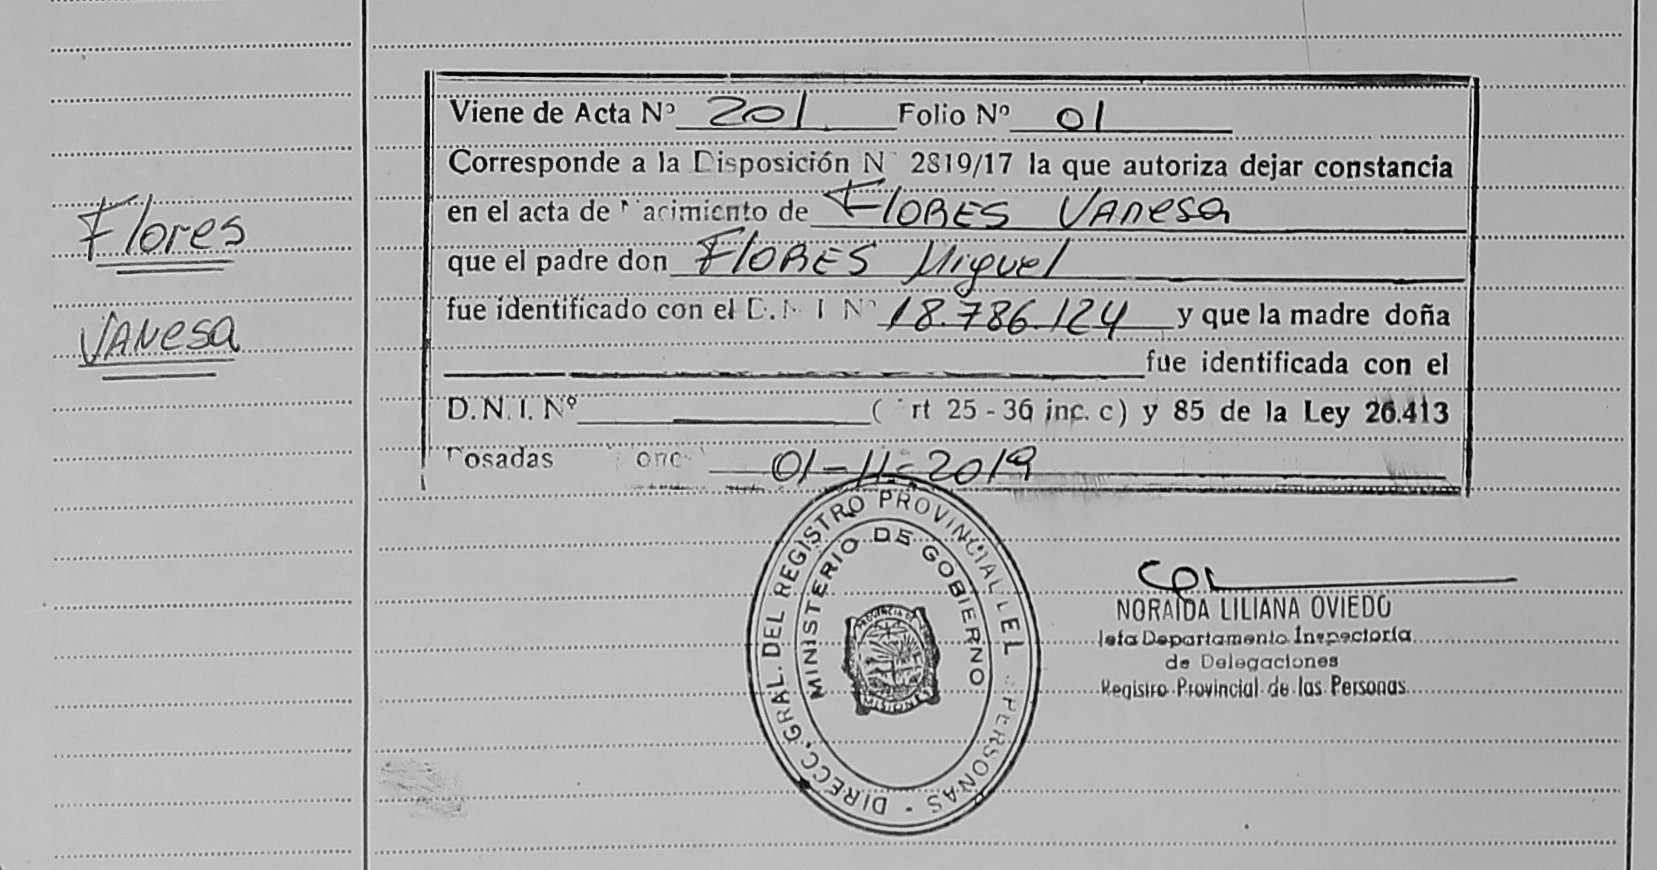 Flores
Vanesa
Viene de Acta Nº 201 Folio Nº 01
Corresponde a la Disposición N 2819/17 la que autoriza dejar constancia
en el acta de Nacimiento de FlORES VAnesa
que el padre don FlORES Miguel
fue identificado con el D.N.I Nº 18.786.124 y que la madre doña
fue identificada con el
D.N.I. Nº ( rt 25 - 36 inc. c) y 85 de la Ley 26.413
Posadas 01-11-2019
DIRECC. GRAL. DEL REGISTRO PROVINCIAL DE L PERSONAS
MINISTERIO DE GOBIERNO
MISIONES
NORAIDA LILIANA OVIEDO
Jefa Departamento Inspectoría
de Delegaciones
Registro Provincial de las Personas